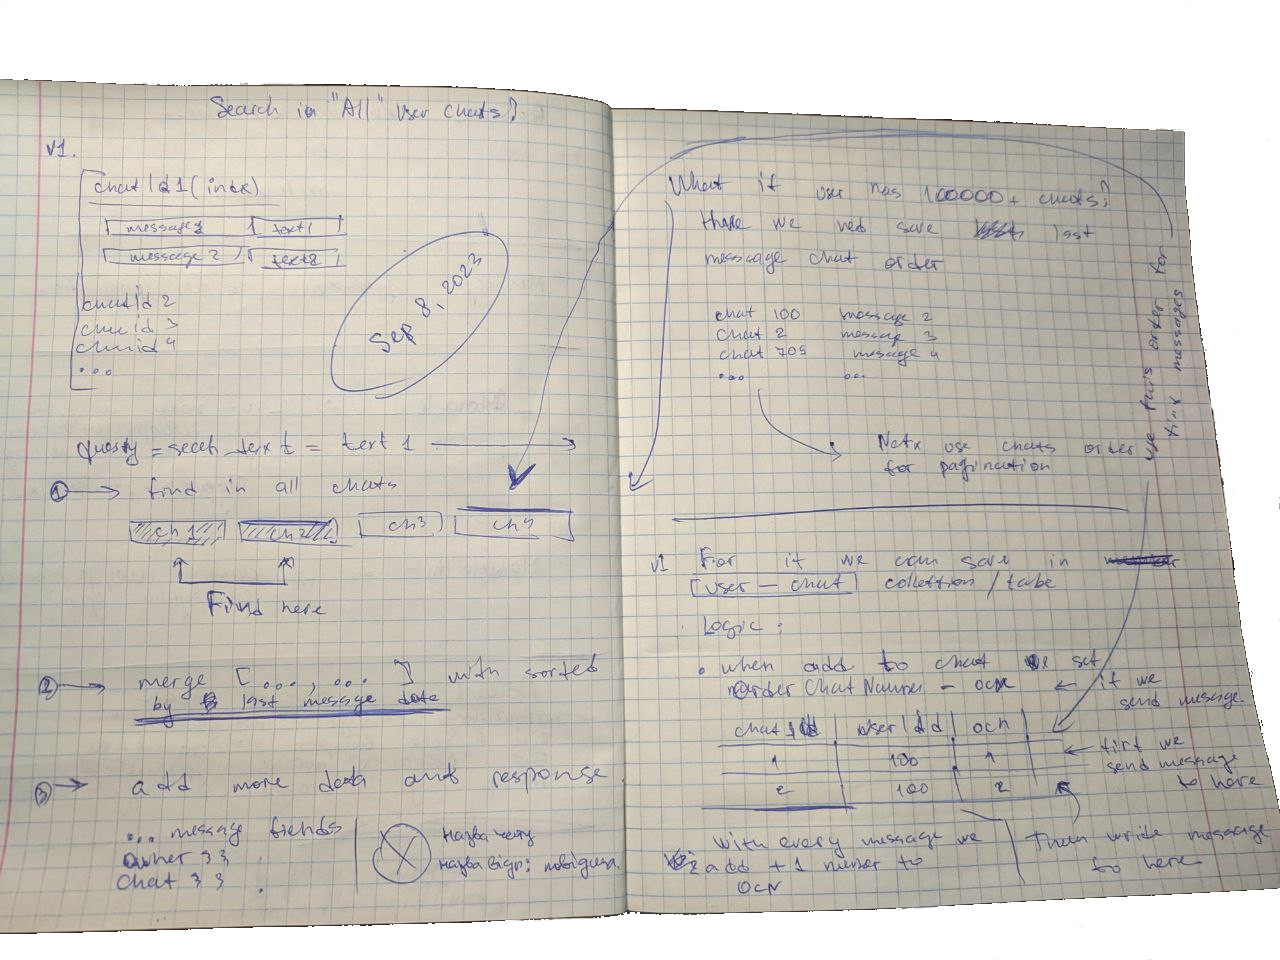 Search in "All" user chats?
v1.
chatId1 (index)
message1 text1
message 2 text2
chatId 2
chatId 3
chatId 4
...
Sep 8, 2023
query = seach_text = text 1
1 find in all chats
ch 1 ch2 ch3 ch4
Find here
2 merge [..., ...] with sorted
by last message date
3 add more data and response
... message fiends
owner 33
chat 33
Назва чату
Назва відп; повідомл.
What if user has 100000+ chats?
there we ned save last
message chat order
chat 100 message 2
chat 2 message 3
chat 705 message 4
... ...
Notx use chats order
for pagination
use this order for
find messages
v1 For it we can save in
[user — chat] collettion / table
Logic:
• when add to chat we set
Order Chat Number - OCN ← if we
send message.
chat Id user Id OCN
1 100 1
2 100 2
← firt we
send message
to here
With every message we
add + 1 numer to
OCN
Then write message
to here